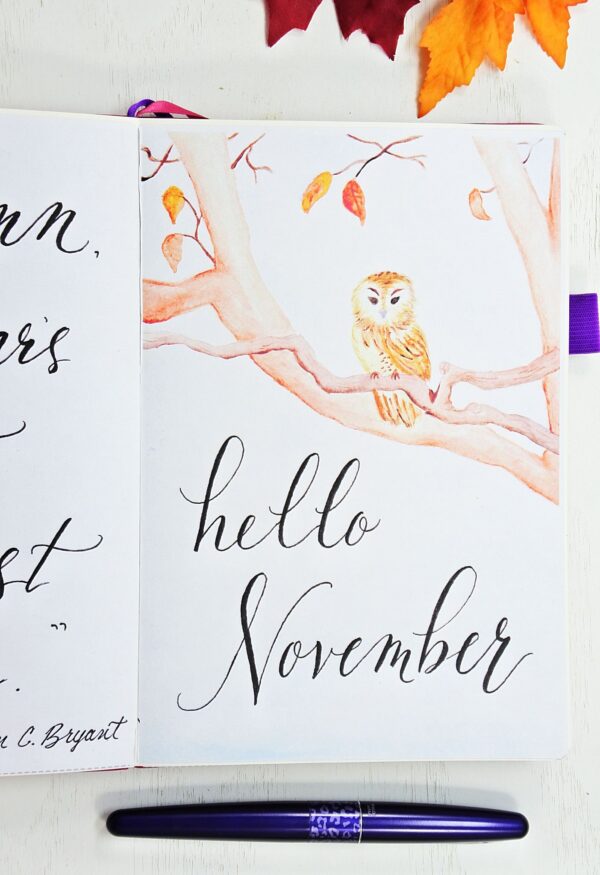 mn,
ar's
st
”
C. Bryant
hello
November